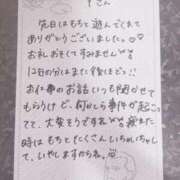 さん
先日はもちと遊んでくれて
ありがとうございました。
お礼おそくてすみません
12日の分はまた後ほど!!
お仕事のお話いつも聞かせて
もらうけど、何かしら事件が起こ
てて、大変そうです 疲れた
時はもちとたくさんいちゃいちゃし
て、いやしますからね。